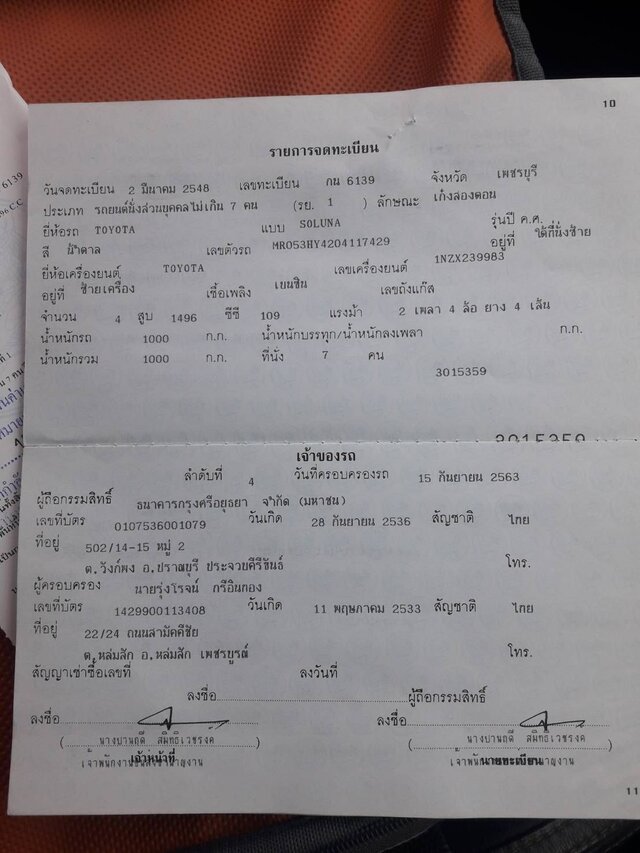 10
รายการจดทะเบียน
วันจดทะเบียน 2 มีนาคม 2548 เลขทะเบียน กน 6139 จังหวัด เพชรบุรี
ประเภท รถยนต์นั่งส่วนบุคคลไม่เกิน 7 คน (รย. 1 ) ลักษณะ เก๋งสองตอน
ยี่ห้อรถ TOYOTA แบบ SOLUNA รุ่นปี ค.ศ.
สี น้ำตาล เลขตัวรถ MR053HY4204117429 อยู่ที่ ใต้ที่นั่งซ้าย
ยี่ห้อเครื่องยนต์ TOYOTA เลขเครื่องยนต์ 1NZX239983
อยู่ที่ ซ้ายเครื่อง เชื้อเพลิง เบนซิน เลขถังแก๊ส
จำนวน 4 สูบ 1496 ซีซี 109 แรงม้า 2 เพลา 4 ล้อ ยาง 4 เส้น
น้ำหนักรถ 1000 ก.ก. น้ำหนักบรรทุก/น้ำหนักลงเพลา ก.ก.
น้ำหนักรวม 1000 ก.ก. ที่นั่ง 7 คน
3015359
3015359
เจ้าของรถ
ลำดับที่ 4 วันที่ครอบครองรถ 15 กันยายน 2563
ผู้ถือกรรมสิทธิ์ ธนาคารกรุงศรีอยุธยา จำกัด (มหาชน)
เลขที่บัตร 0107536001079 วันเกิด 28 กันยายน 2536 สัญชาติ ไทย
ที่อยู่ 502/14-15 หมู่ 2
ต.วังก์พง อ.ปราณบุรี ประจวบคีรีขันธ์ โทร.
ผู้ครอบครอง นายรุ่งโรจน์ กรีอินทอง
เลขที่บัตร 1429900113408 วันเกิด 11 พฤษภาคม 2533 สัญชาติ ไทย
ที่อยู่ 22/24 ถนนสามัคคีชัย
ต.หล่มสัก อ.หล่มสัก เพชรบูรณ์ โทร.
สัญญาเช่าซื้อเลขที่ ลงวันที่
ลงชื่อ ผู้ถือกรรมสิทธิ์
ลงชื่อ ลงชื่อ
(นางปานฤดี สมิทธิเวชรงค) (นางปานฤดี สมิทธิเวชรงค)
เจ้าหน้าที่ นายทะเบียน
11
6139